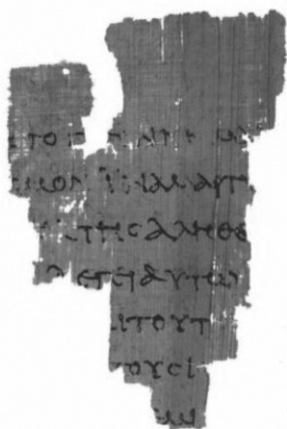 ΤΟ Γ
ϹΜΟΝ ΙΝΑ ΜΑΡΤ
ΤΗϹ ΑΛΗΘΕ
ΛΕΓΕΙ ΑΥΤΩ
ΙΤΟΥΤ
ΤΟΥϹ Ι